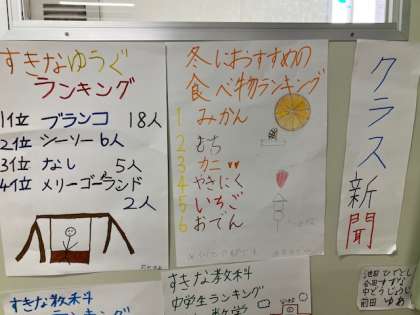 すきなゆうぐ
ランキング
1位 ブランコ 18人
2位 シーソー 6人
3位 なし 5人
4位 メリーゴーランド
2人
冬におすすめの
食べ物ランキング
1 みかん
2 むち
3 カニ
4 やきにく
5 いちご
6 おでん
クラス新聞
すきな教科
ランキング
すきな教科
中学生ランキング
前田 ゆあ